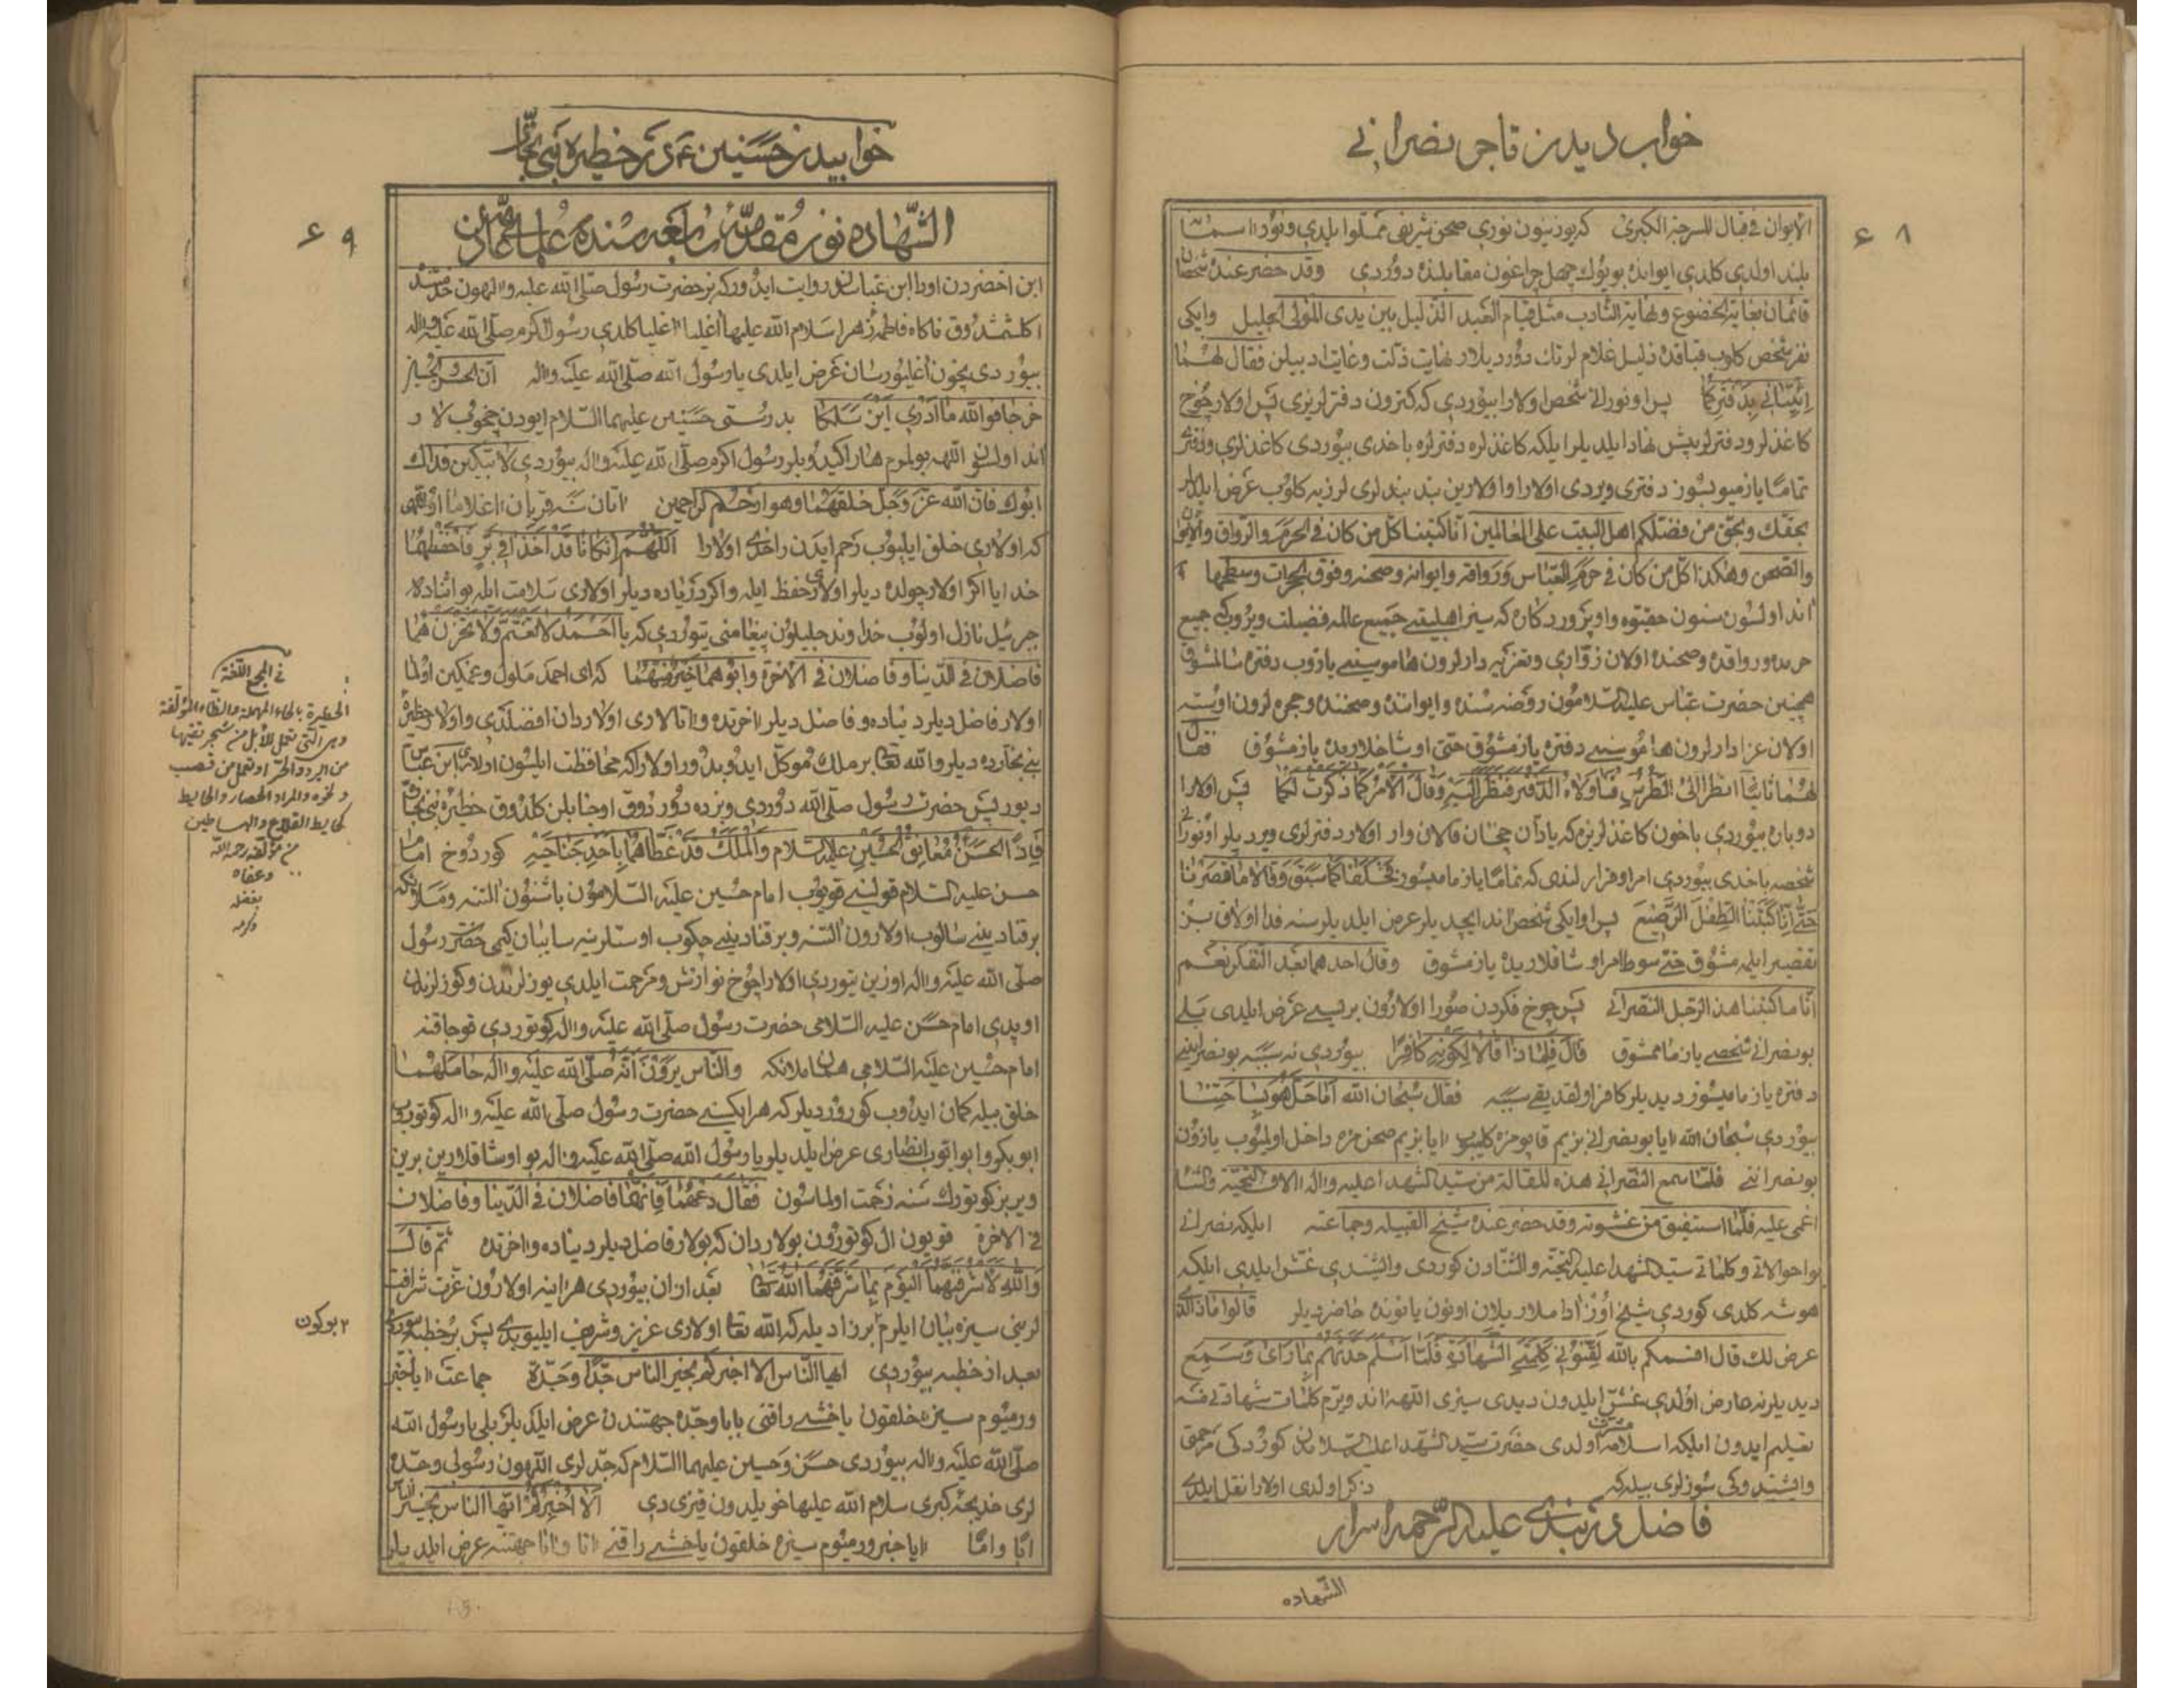 خواب دیدن تاجر نصرانی
۶۸
الایوان فقال للسرجة الکبری که یوزنیون نوری صحن شریفی مملوا یلدی ونور آسمانا
بلند اولدی کلدی ایوانده بویوک چهل چراغون مقابلنده دوردی وقد حضر عنده شخصان
قائمان بغایة الخضوع ونهایة التأدب مثل قیام العبد الذلیل بین یدی المولی الجلیل وایکی
نفر شخص کلوب قباقنده ذلیل غلام لرتک دوردیلار نهایت ذلت وغایت ادبیلن فقال لهما
ائتیانی بدفترکما پس او نورانی شخص اولارا بیوردی که کتورون دفترلریزی پس اولار چوخ
کاغذلر ودفترلر پیش نهاد ایلدیلر ایلکه کاغذلره دفترلره باخدی بیوردی کاغذلری ودفتری
تماما یازمیوبسوز دفتری ویردی اولارا واولارین بند بندلری لرزیه کلوب عرض ایلدیلر
بحقک وبحق من فضلکم اهل البیت علی العالمین انا کتبنا کل من کان فی الحرم والرواق والایوان
والصحن وهکذا کل من کان فی حرم العباس ورواقه وایوانه وصحنه وفوق الحجرات وسطحها
آند اولسون سنون حقیوه واو پرورد کاره که سیز اهلبیتی جمیع عالمه فضیلت ویروب که جمیع
حرمده ورواقده وصحنده اولان زواری وتعزیه دارلرون هاموسینی یازوب دفتره سالمشوق
همچنین حضرت عباس علیه السلامون روضه سنده وایوانده وصحنده وحجره لرون اوستنه
اولان عزادارلرون هاموسینی دفتره یازمشوق حتی اوشاخلاریده یازمشوق فقال
لهما ثانیا انظرا الی الطرس فناولاه الدفتر فنظر الیه وقال الامر کما ذکرت لکما پس اولارا
دوباره بیوردی باخون کاغذلریزه که یادان چخان قالان وار اولار دفترلری ویردیلر او نورانی
شخصه باخدی بیوردی امر او قرارلندی که تماما یازمامیسوز فحلفا کما سبق وقالا ما قصرنا
حتی انا کتبنا الطفل الرضیع پس او ایکی شخص آند ایچدیلر عرض ایلدیلر سنه فدا اولاق بز
تقصیر ایلمه مشوق حتی سوط امر اوشاقلاریده یازمشوق وقال احدهما بعد التفکر نعم
انا ما کتبنا هذا الرجل النصرانی پس چوخ فکردن صورا اولارون بریسی عرض ایلدی بلی
بو نصرانی شخصی یازمامشوق قال فلماذا قالا لکونه کافرا بیوردی نه سببه بو نصرانینی
دفتره یازمامیسوز دیدیلر کافر اولقدیقی سببه فقال سبحان الله اما حل هو بساحتنا
بیوردی سبحان الله آیا بو نصرانی بزیم قاپومزه کلیوب آیا بزیم صحن مزه داخل اولمیوب یازون
بو نصرانینی فلما سمع النصرانی هذه المقالة من سید الشهدا علیه وآله آلاف التحیة والثنا
اغمی علیه فلما استفیق من غشوته وقد حضر عنده شیخ القبیله وجماعته ایلکه نصرانی
بو احوالاتی وکلماتی سید الشهدا علیه التحیة والثنادن کوردی وایشتدی غش ایلدی ایلکه
هوشه کلدی کوردی شیخ اوز آداملاری یلان اونون یانونده حاضردیلر قالوا ماذا الذی
عرض لک قال اقسمکم بالله لقنونی کلمتی الشهادة فلما اسلم حدثهم بما رای وسمع
دیدیلر نه عارض اولدی غش ایلدون دیدی سیزی اللهه آند ویررم کلمات شهادتی منه
تعلیم ایدون ایلکه اسلامه مشرف اولدی حضرت سید الشهدا علیه السلامدن کوردکی مرحمتی
وایشتدوکی سوزلری بیله که ذکر اولدی اولارا نقل ایلدی
فاضل دربندی علیه الرحمه اسرار
الشهاده
خوابیدن حسنین ع در حظیره بنی نجار
۶۹
الشهاده نون مقدمه رابعه سنده علی محمد بن
ابن اخضردن اودا ابن عباسدن روایت ایدور که بز حضرت رسول صلی الله علیه وآلهون خدمتنده
اکلشمشدوق ناکاه فاطمه زهرا سلام الله علیها آغلیا آغلیا کلدی رسول اکرم صلی الله علیه وآله
بیوردی نچون آغلیورسان عرض ایلدی یا رسول الله صلی الله علیه وآله ان الحسن والحسین
خرجا فوالله ما ادری این سلکا بدرستی حسنین علیهما السلام ایودن چخوبلار
آند اولسون اللهه بولموم هارا کیدوبلر رسول اکرم صلی الله علیه وآله بیوردی لا تبکین فداک
ابوک فان الله عز وجل خلقهما وهو ارحم الراحمین آتان سنه قربان آغلاما او اللهی
که اولاری خلق ایلیوب رحم ایدن راخدی اولارا اللهم ان کانا قد اخذا فی بر فاحفظهما
خدایا اکر اولار چولده دیلر اولاری حفظ ایله واکر دریاده دیلر اولاری سلامت ایله بو اثناده
جبرئیل نازل اولوب خداوند جلیلون پیغامنی یتوردی که یا احمد لا تغتم ولا تحزن هما
فاضلان فی الدنیا وفاضلان فی الآخرة وابوهما خیر منهما که ای احمد ملول وغمکین اولما
اولار فاضل دیلر دنیاده وفاضل دیلر آخرتده وآتالاری اولاردان افضلدی واولار حظیره
بنی نجارده دیلر والله تعالی بر ملک موکل ایدوبدور اولارا که محافظت ایلسون اولاری ابن عباس
دیور پس حضرت رسول صلی الله دوردی وبزده دوردوق اونا یلن کلدوق حظیره بنی نجاره
فاذا الحسن معانق الحسین علیه السلام والملک قد غطاهما باحد جناحیه کوردوخ امام
حسن علیه السلام قولینی قویوب امام حسین علیه السلامون باشنون التنه وملائکه
بر قنادینی سالوب اولارون التنه وبر قنادینی چکوب اوستلرینه سایبان کیمی حضرت رسول
صلی الله علیه وآله اوزین یتوردی اولارا چوخ نوازش ومرحمت ایلدی یوزلرندن وکوزلرندن
اوپدی امام حسن علیه السلامی حضرت رسول صلی الله علیه وآله کوتوردی قوجاقنه
امام حسین علیه السلامی همان ملائکه والناس یرون انه صلی الله علیه وآله حاملهما
خلق بیله کمان ایدوب کوروردیلر که هر ایکیسنی حضرت رسول صلی الله علیه وآله کوتوروب
ابوبکر وابو ایوب انصاری عرض ایلدیلر یا رسول الله صلی الله علیه وآله بو اوشاقلارین برین
ویر بز کوتورک سنه زحمت اولماسون فقال دعهما فانهما فاضلان فی الدنیا وفاضلان
فی الآخرة قویون ال کوتورون بولاردان که بولار فاضل دیلر دنیاده وآخرتده ثم قال
والله لاشرفنهما الیوم بما شرفهما الله تعالی بعد ازان بیوردی هر اینه اولارون عزت شرافت
لرینی سیزه بیان ایلرم برزادیله که الله تعالی اولاری عزیز وشریف ایلیوبدی پس بر خطبه بیوردی
بعد از خطبه بیوردی ایها الناس الا اخبرکم بخیر الناس جدا وجدة جماعت آیا خبر
ورمیوم سیزه خلقون یاخشی راقنی بابا وجده جهتندن عرض ایلدیلر بلی یا رسول الله
صلی الله علیه وآله بیوردی حسن وحسین علیهما السلام که جدلری اللهون رسولی وجده
لری خدیجه کبری سلام الله علیها خویلدون قیزی دی الا اخبرکم ایها الناس بخیر الناس
ابا واما آیا خبر ورمیوم سیزه خلقون یاخشی راقنی آتا وآنا جهتندن عرض ایلدیلر
فی المجمع اللغة
الحظیرة بالحاء المهملة والظاء المؤلفة
وهی التی تعمل للابل من شجر تقیها
من البرد والحر او تعمل من قصب
ونحوه والمراد الحصار والحایط
کحایط القلاع والبساطین
من مؤلفه رحمه الله
وعفاه
بفضله
وکرمه
۲ بوکون